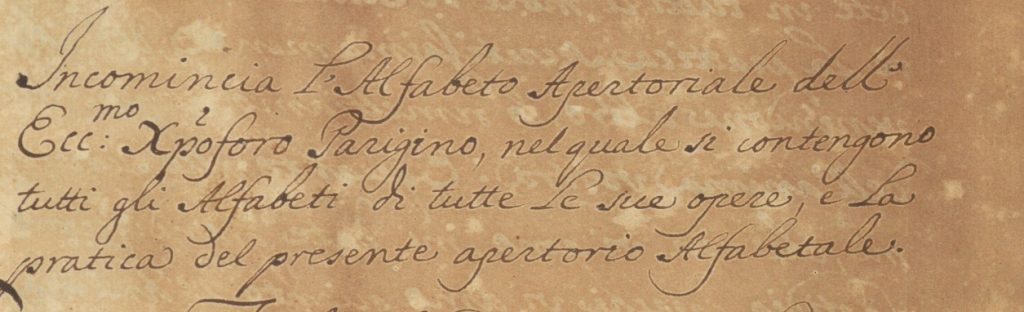 Incomincia l'Alfabeto Apertoriale dell'
Ecc:mo Xp̃oforo Parigino, nel quale si contengono
tutti gli Alfabeti di tutte le sue opere, e la
pratica del presente apertorio Alfabetale.